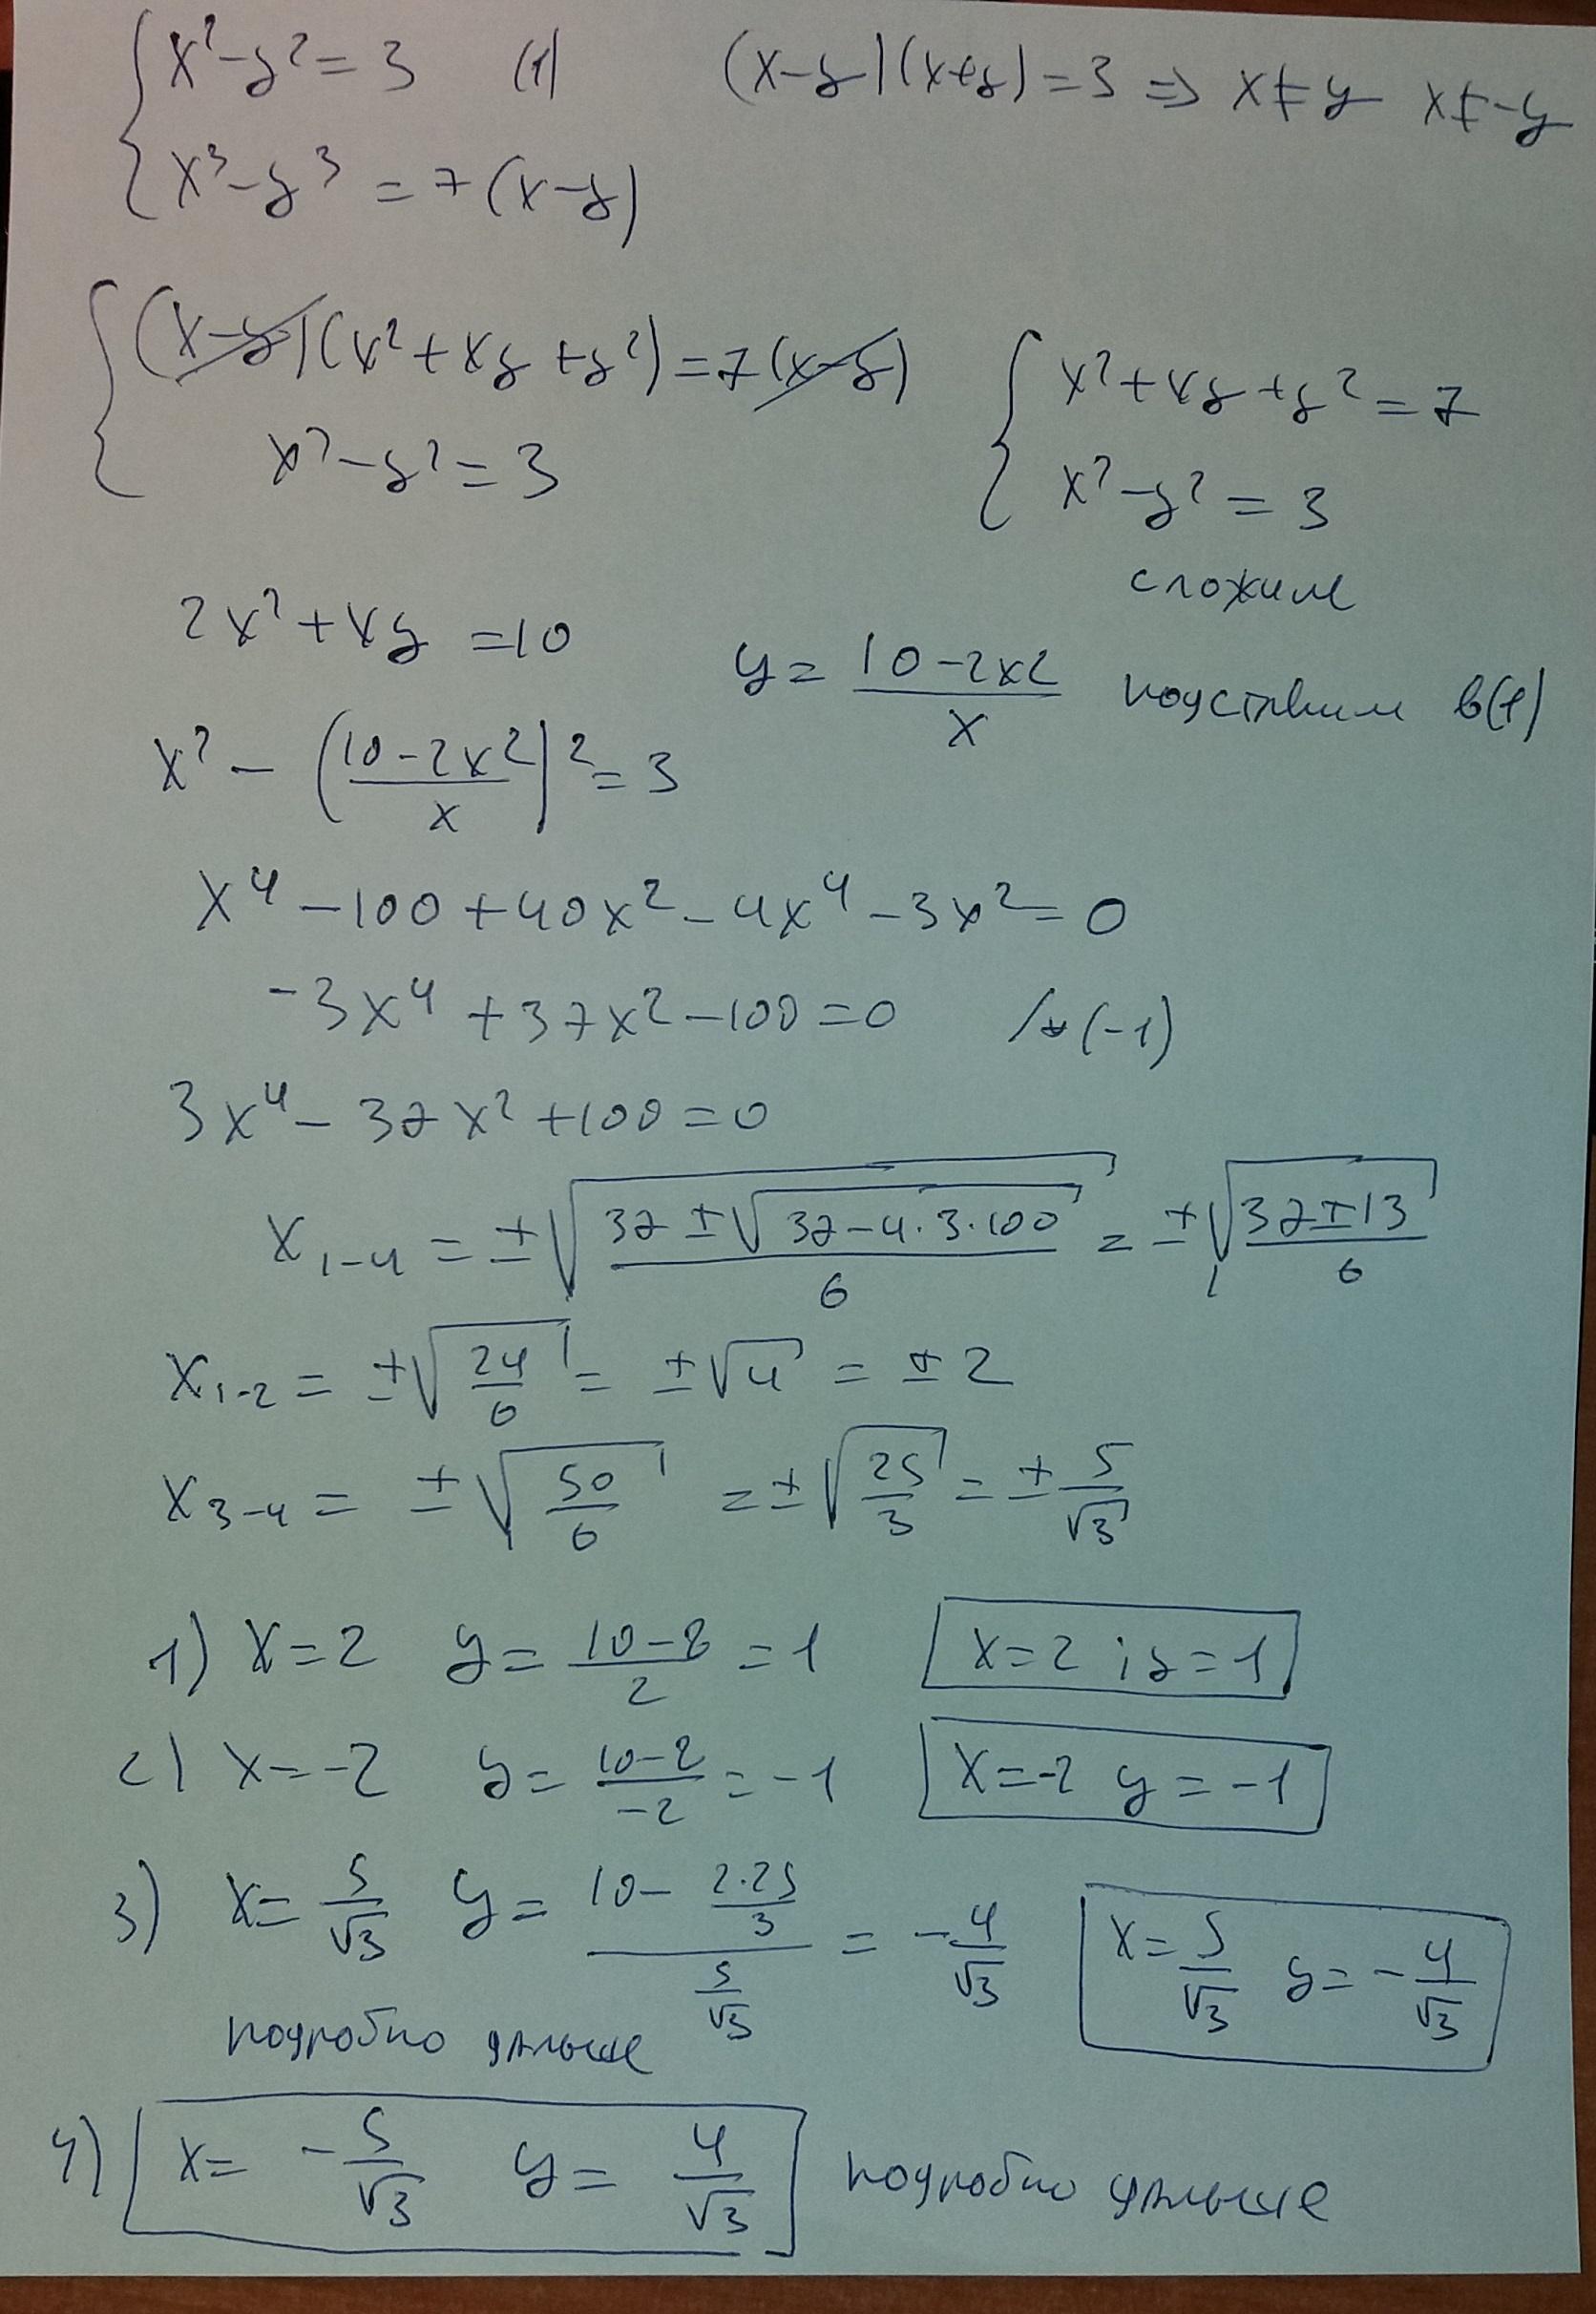 { x² - y² = 3 (1) (x-y)(x+y) = 3 ⇒ x ≠ y x ≠ -y
x³ - y³ = 7(x-y)
{ (x-y)(x² + xy + y²) = 7(x-y)
x² - y² = 3
{ x² + xy + y² = 7
x² - y² = 3
сложим
2x² + xy = 10
y = (10 - 2x2)/x подставим в (1)
x² - ((10 - 2x²)/x)² = 3
x⁴ - 100 + 40x² - 4x⁴ - 3x² = 0
-3x⁴ + 37x² - 100 = 0 /*(-1)
3x⁴ - 37x² + 100 = 0
x₁₋₄ = ±√((37 ± √(37 - 4·3·100))/6) = ±√((37 ± 13)/6)
x₁₋₂ = ±√(24/6) = ±√4 = ±2
x₃₋₄ = ±√(50/6) = ±√(25/3) = ±5/√3
1) x = 2 y = (10-8)/2 = 1 x = 2 ; y = 1
2) x = -2 y = (10-8)/-2 = -1 x = -2 y = -1
3) x = 5/√3 y = (10 - 2·25/3)/(5/√3) = -4/√3 x = 5/√3 y = -4/√3
подробно дальше
4) x = -5/√3 y = 4/√3 подробно дальше